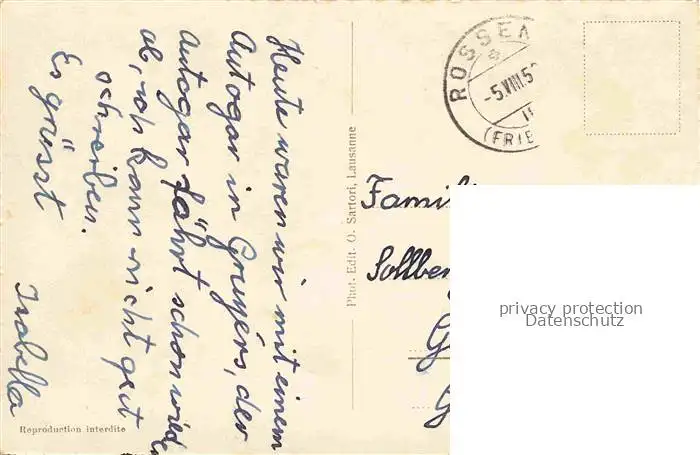 Heute waren wir mit einem
Autogar in Gruyérs, der
Autogar fährt schon wied
ab, ich kann nicht gut
schreiben.
Es grüsst
Isabella
Reproduction interdite
Phot. Edit. O. Sartori, Lausanne
ROSSE
-5.VIII.5
(FRIB
Famil
Sollber
G
G
privacy protection
Datenschutz